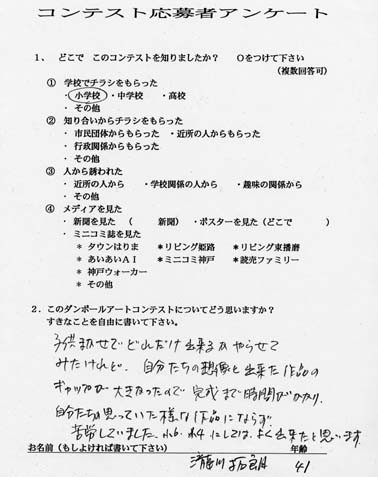 コンテスト応募者アンケート
1、 どこで このコンテストを知りましたか? Oをつけて下さい
(複数回答可)
① 学校でチラシをもらった
・小学校 ・中学校 ・高校
・その他
② 知り合いからチラシをもらった
・市民団体からもらった ・近所の人からもらった
・行政関係からもらった
・その他
③ 人から誘われた
・近所の人から ・学校関係の人から ・趣味の関係から
・その他
④ メディアを見た
・新聞を見た ( 新聞) ・ポスターを見た (どこで )
・ミニコミ誌を見た
* タウンはりま *リビング姫路 *リビング東播磨
* あいあいAI *ミニコミ神戸 *読売ファミリー
* 神戸ウォーカー
* その他
2. このダンボールアートコンテストについてどう思いますか?
すきなことを自由に書いて下さい。
子供まかせでどれだけ出来るかやらせて
みたけれど、自分たちの想像と出来た作品の
ギャップが大きなったので完成まで時間がかかり
自分たちの思っていた様な作品にならず
苦労していました。小6、小4にしては、よく出来たと思います
お名前(もしよければ書いて下さい) 年齢
瀧川 拓朗 41